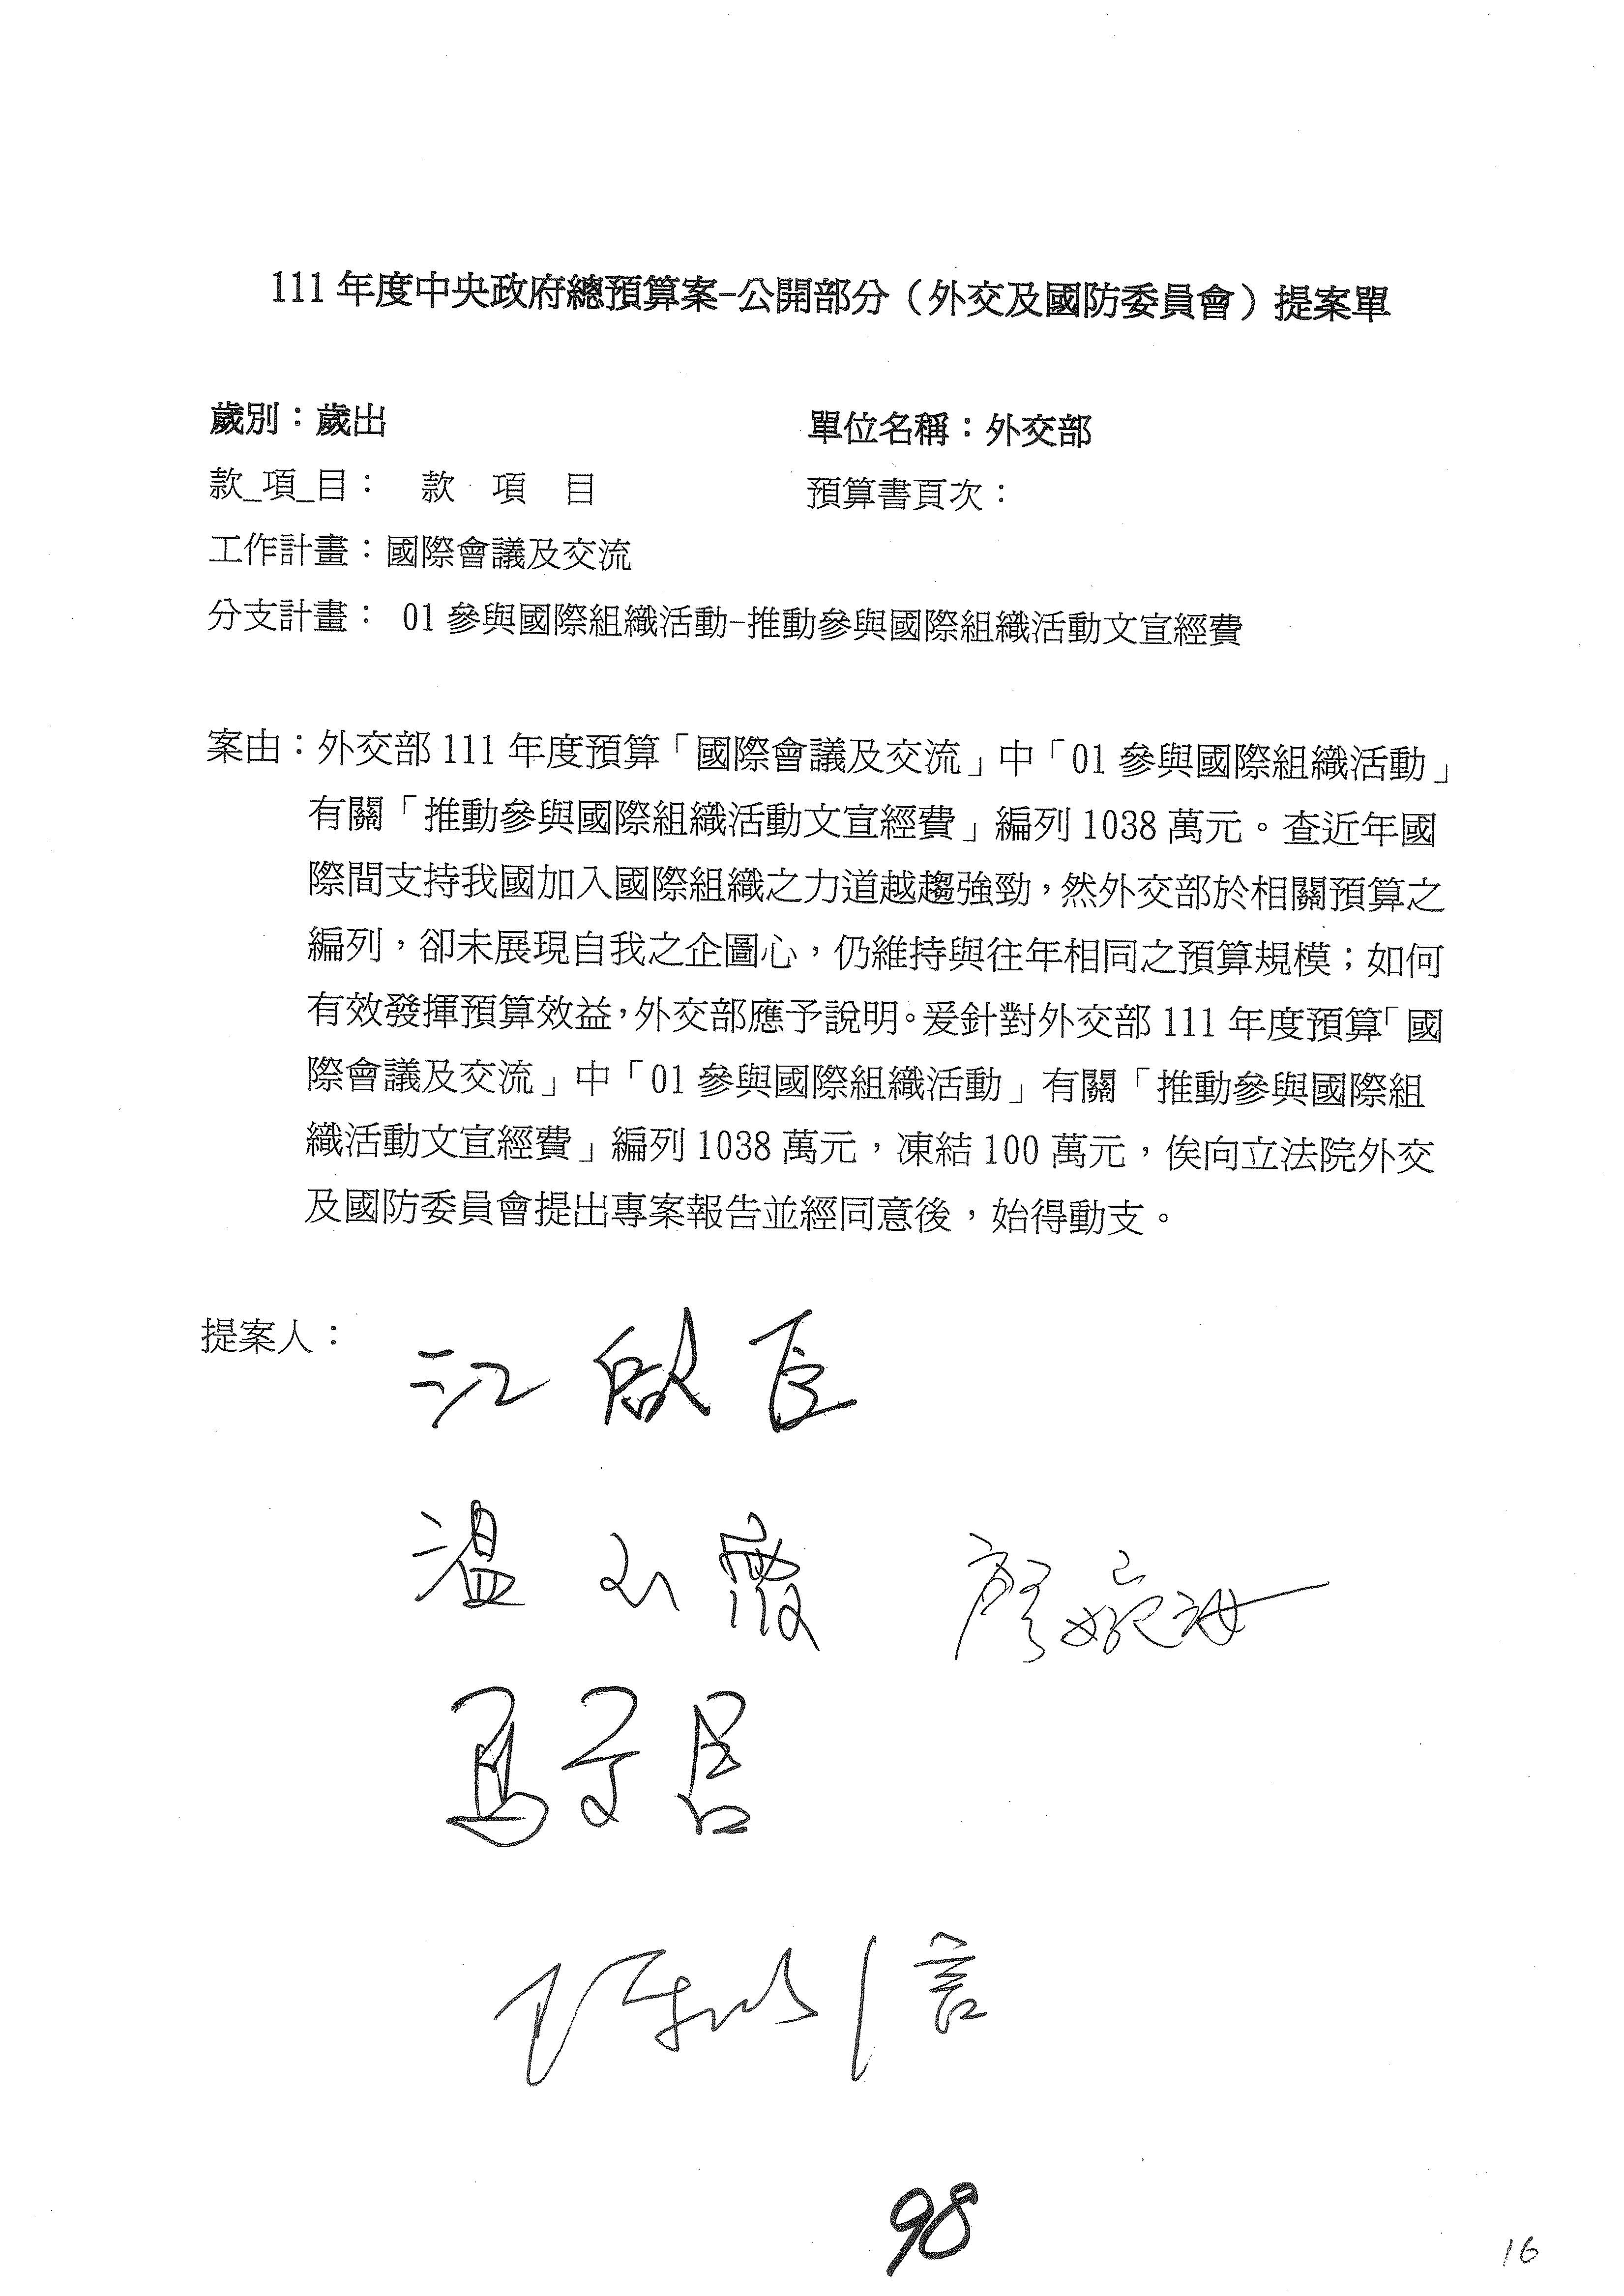 111 年度中央政府總預算案-公開部分（外交及國防委員會）提案單
歲別：歲出 單位名稱：外交部
款_項_目： 款 項 目 預算書頁次：
工作計畫：國際會議及交流
分支計畫： 01 參與國際組織活動-推動參與國際組織活動文宣經費
案由：外交部 111 年度預算「國際會議及交流」中「01 參與國際組織活動」
有關「推動參與國際組織活動文宣經費」編列 1038 萬元。查近年國
際間支持我國加入國際組織之力道越趨強勁，然外交部於相關預算之
編列，卻未展現自我之企圖心，仍維持與往年相同之預算規模；如何
有效發揮預算效益，外交部應予說明。爰針對外交部 111 年度預算「國
際會議及交流」中「01 參與國際組織活動」有關「推動參與國際組
織活動文宣經費」編列 1038 萬元，凍結 100 萬元，俟向立法院外交
及國防委員會提出專案報告並經同意後，始得動支。
提案人：
江啟臣
溫玉霞
馬文君
陳以信
98
16